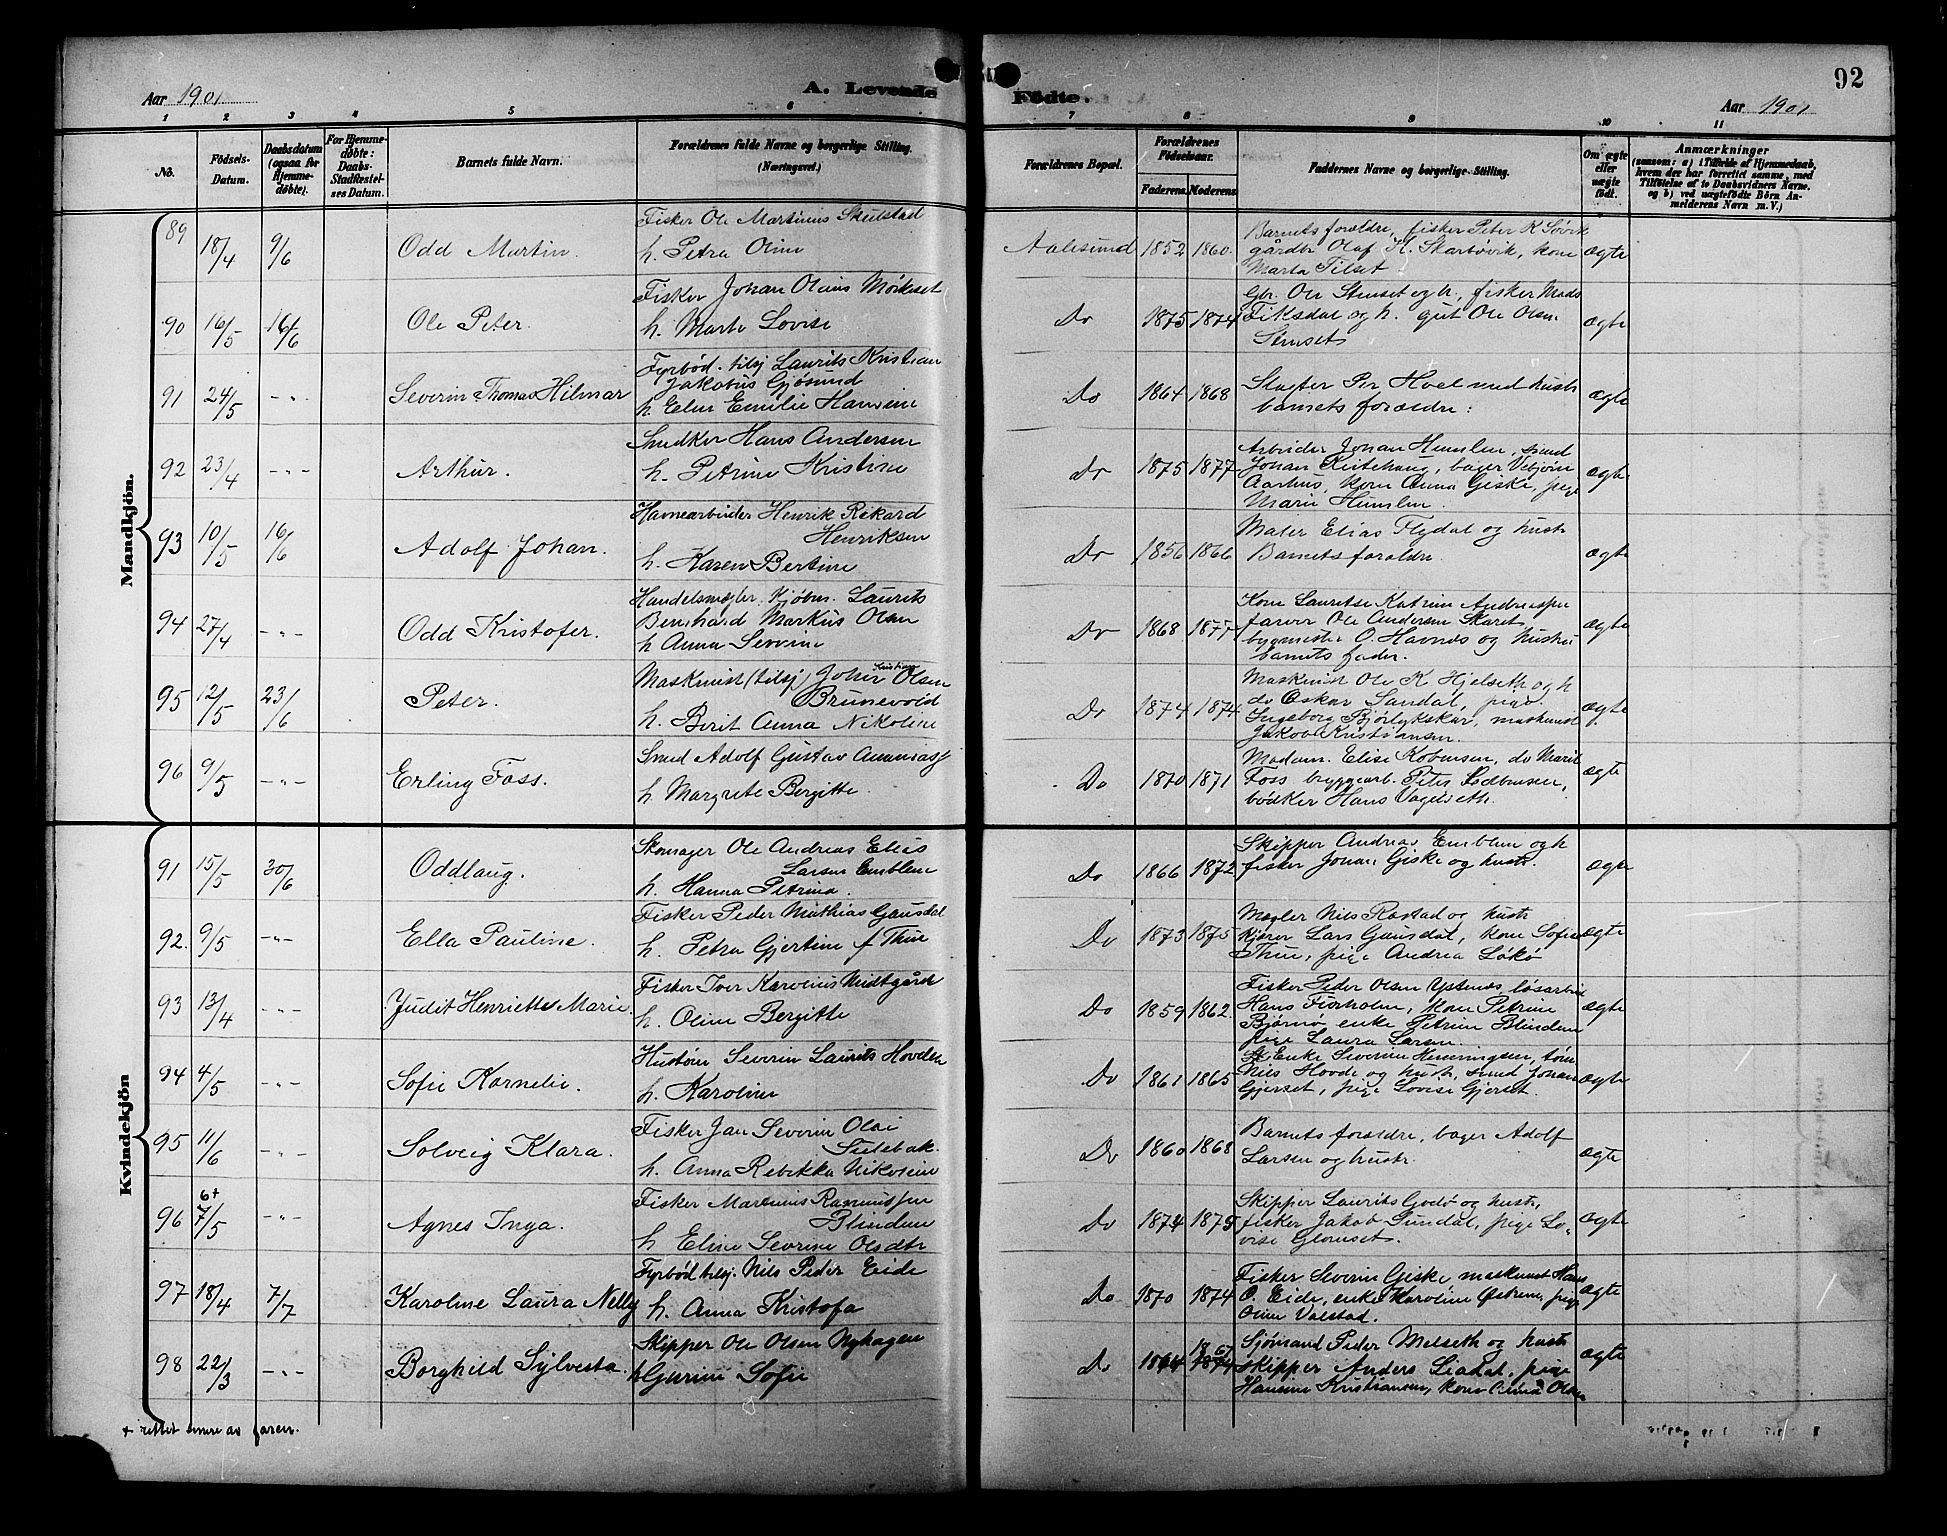 92
A. Levende
Födte.
Aar 1901
Aar 1901
1 2 3 4 5 6 7 8 9 10 11
No.
Födsels-Datum.
Daabsdatum (ogsaa for Hjemmedøbte).
For Hjemmedøbte: Daabs-Stadfæstelses Datum.
Barnets fulde Navn.
Forældrenes fulde Navne og borgerlige Stilling. (Næringsvei.)
Forældrenes Bopæl.
Forældrenes Födselsaar.
Faderens. Moderens.
Faddernes Navne og borgerlige Stilling.
Om ægte eller uægte födt.
Anmærkninger
(saasom: a) i Tilfælde af Hjemmedaab, hvem der har forrettet samme, med Tilföielse af to Daabsvidners Navne, og b) ved uægtefödte Börn Anmelderens Navn m. V.)
Mandkjön.
89 18/4 9/6 Odd Martin. Fisker Ole Martinus Skulstad
h. Petra Oline Aalesund 1852 1860 Barnets forældre, fisker Peter K Søvik
gårdbr Olaf K. Skarbøvik, kone
Marta Tilset ægte
90 16/5 16/6 Ole Peter. Fisker Johan Olaus Mørkeset
h. Marte Lovise Do 1875 1874 Gbr. Ole Stenset og h, fisker Mads
Fiksdal og h. gut Ole Olsen
Stenset ægte
91 24/5 -"- Severin Thomas Hilmar Fyrbød. tilsj Laurits Kristian
Jakobus Gjøsund
h Elen Emilie Hansine Do 1864 1868 Slagter Per Hoel med hustr
barnets forældre. ægte
92 23/4 -"- Arthur. Snedker Hans Andersen
h. Petrine Kristine Do 1875 1877 Arbeider Johan Humlen, smed
Johan, bager
Aarhus, kone Anna Giske, pige
Marie Humlen ægte
93 10/5 16/6 Adolf Johan. Havnearbeider Henrik Rikard
Henriksen
h. Karen Bertine Do 1856 1866 Maler Elias Flydal og hustr
Barnets forældre. ægte
94 27/4 -"- Odd Kristofer. Handelsmægler, Kjøbm. Laurits
Bernhard Markus Olsen
h Anna Severine Do 1868 1877 Kone Lauritse Katrine
farver Ole Andersen Skaret
bygmester O. Havnes og hustru
barnets fader. ægte
95 12/5 23/6 Peter. Maskinist (tilsj) Johan Kristian Olsen
Brunevold
h. Berit Anna Nikoline Do 1874 1874 Maskinist Ole K. Hjelseth og h
do Oskar Sandal, pige
Ingeborg Bjørlykskar, maskinist
Jakob Kristiansen. ægte
96 9/5 -"- Erling Foss. Smed Adolf Gustav
h. Margrete Bergitte. Do 1870 1871 Madam. Elise, do Marit
Foss bryggearb. Peter
bødker Hans Vagelseth. ægte
Kvindekjön
91 15/5 30/6 Oddlaug. Skomager Ole Andreas Elias
Larsen Emblem
h. Hanna Petrina. Do 1866 1872 Skipper Andreas Emblem og h
fisker Johan Giske og hustr. ægte
92. 9/5 -"- Ella Pauline. Fisker Peder Mathias Gausdal
h. Petra Gjertine f Thue Do 1873 1875 Mægler Nils Røstad og hustr
kjører Lars Gausdal, kone Sofie
Thue, pige Andrea Løkø ægte
93 13/4 -"- Judit Henriette Marie. Fisker Iver Karolius Midtgård
h. Oline Bergitte Do 1859 1862 Fisker Peder Olsen Ystenes, løsarbeid
Hans Furholm, kone Petrine
Bjørnø, enke Petrine Blindem
pige Laura Larsen. ægte
94 4/5 -"- Sofie Kornelie. Hustøm Severin Laurits Hovden
h. Karoline Do 1861 1865 Enke Severine Henningsen, tøm
Nils Hovde og hustr, smed Johan
Gjerset, pige Lovise Gjerset. ægte
95 11/6 -"- Solveig Klara. Fisker Jan Severin Olai
Sulebak
h. Anna Rebekka Nikoline Do 1860 1868 Barnets forældre, bager Adolf
Larsen og hustr. ægte
96 6+ 7/5 -"- Agnes Inga. Fisker Martinus Rasmussen
Blindem
h Eline Severine Olsdtr Do 1874 1875 Skipper Laurits Godø og hustr,
fisker Jakob Sundal, pige Lovise
Glomset. ægte
97 18/4 7/7 Karoline Laura Nelly Fyrbød tilsj. Nils Peder Eide
h. Anna Kristofa Do 1870 1874 Fisker Severin Giske, maskinist Hans
O. Eide, enke Karoline Østrem, pige
Oline Valstad. ægte
98 22/3 -"- Borghild Sylvesta. Skipper Ole Olsen Nyhagen
h Gurine Sofie Do 1864 1867 Sjømand Peder Melseth og hustr
skipper Anders Liadal, pige
Hansine Kristiansen, kone Olsen ægte
+ rettet senere av faren.